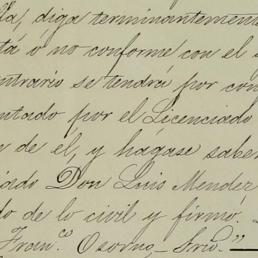 fa, diga terminantemen
tá ó no conforme con el
ntrario se tendra por con
ntado por el Licenciado
n de él, y hágase saber
iado Don Luis Mendez
do de lo civil y firmó.
Fran.co Osorno, Srio."